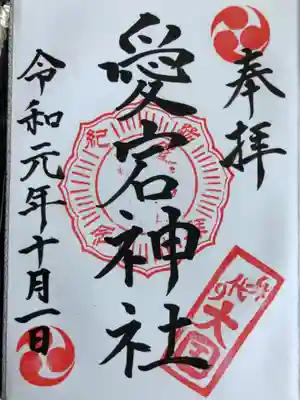 奉拝
愛宕神社
令和元年十月一日